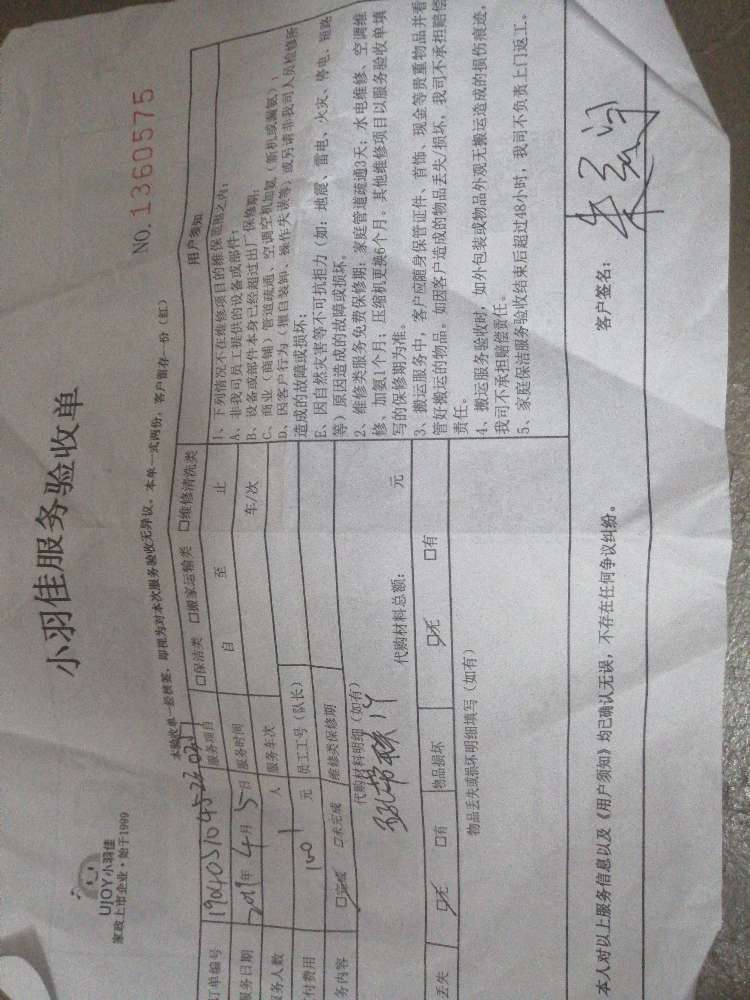 UJOY小羽佳
家政上市企业·始于1999
小羽佳服务验收单
NO. 1360575
本验收单一经签签，即视为对本次服务验收无异议。本单一式两份，客户留存一份（红）
订单编号
服务项目 □保洁类 □搬家运输类 □维修清洗类
服务日期 2019年4月5日 服务时间 自 至 止
服务人数 1人 服务车次 车/次
付费用 100元 员工工号（队长）
务内容 □完成 □未完成 维修类保修期
代购材料明细（如有） 代购材料总额： 元
丢失 □无 □有 物品损坏 □无 □有
物品丢失或损坏明细填写（如有）
用户须知
1、下列情况不在维修项目的维保范围之内：
A、非我司员工提供的设备或部件；
B、设备或部件本身已经超过出厂保修期；
C、商业（商铺）管道疏通、空调空机加氨（新机或漏氨）；
D、因客户行为（擅自装卸、操作失误等）或另请非我司人员检修所
造成的故障或损坏；
E、因自然灾害等不可抗拒力（如：地震、雷电、火灾、停电、短路
等）原因造成的故障或损坏。
2、维修类服务免费保修期：家庭管道疏通3天；水电维修、空调维
修、加氨1个月；压缩机更换6个月。其他维修项目以服务验收单填
写的保修期为准。
3、搬运服务中，客户应随身保管证件、首饰、现金等贵重物品并看
管好搬运的物品。如因客户造成的物品丢失/损坏，我司不承担赔偿
责任。
4、搬运服务验收时，如外包装或物品外观无搬运造成的损伤痕迹，
我司不承担赔偿责任。
5、家庭保洁服务验收结束后超过48小时，我司不负责上门返工。
本人对以上服务信息以及《用户须知》均已确认无误，不存在任何争议纠纷。
客户签名：